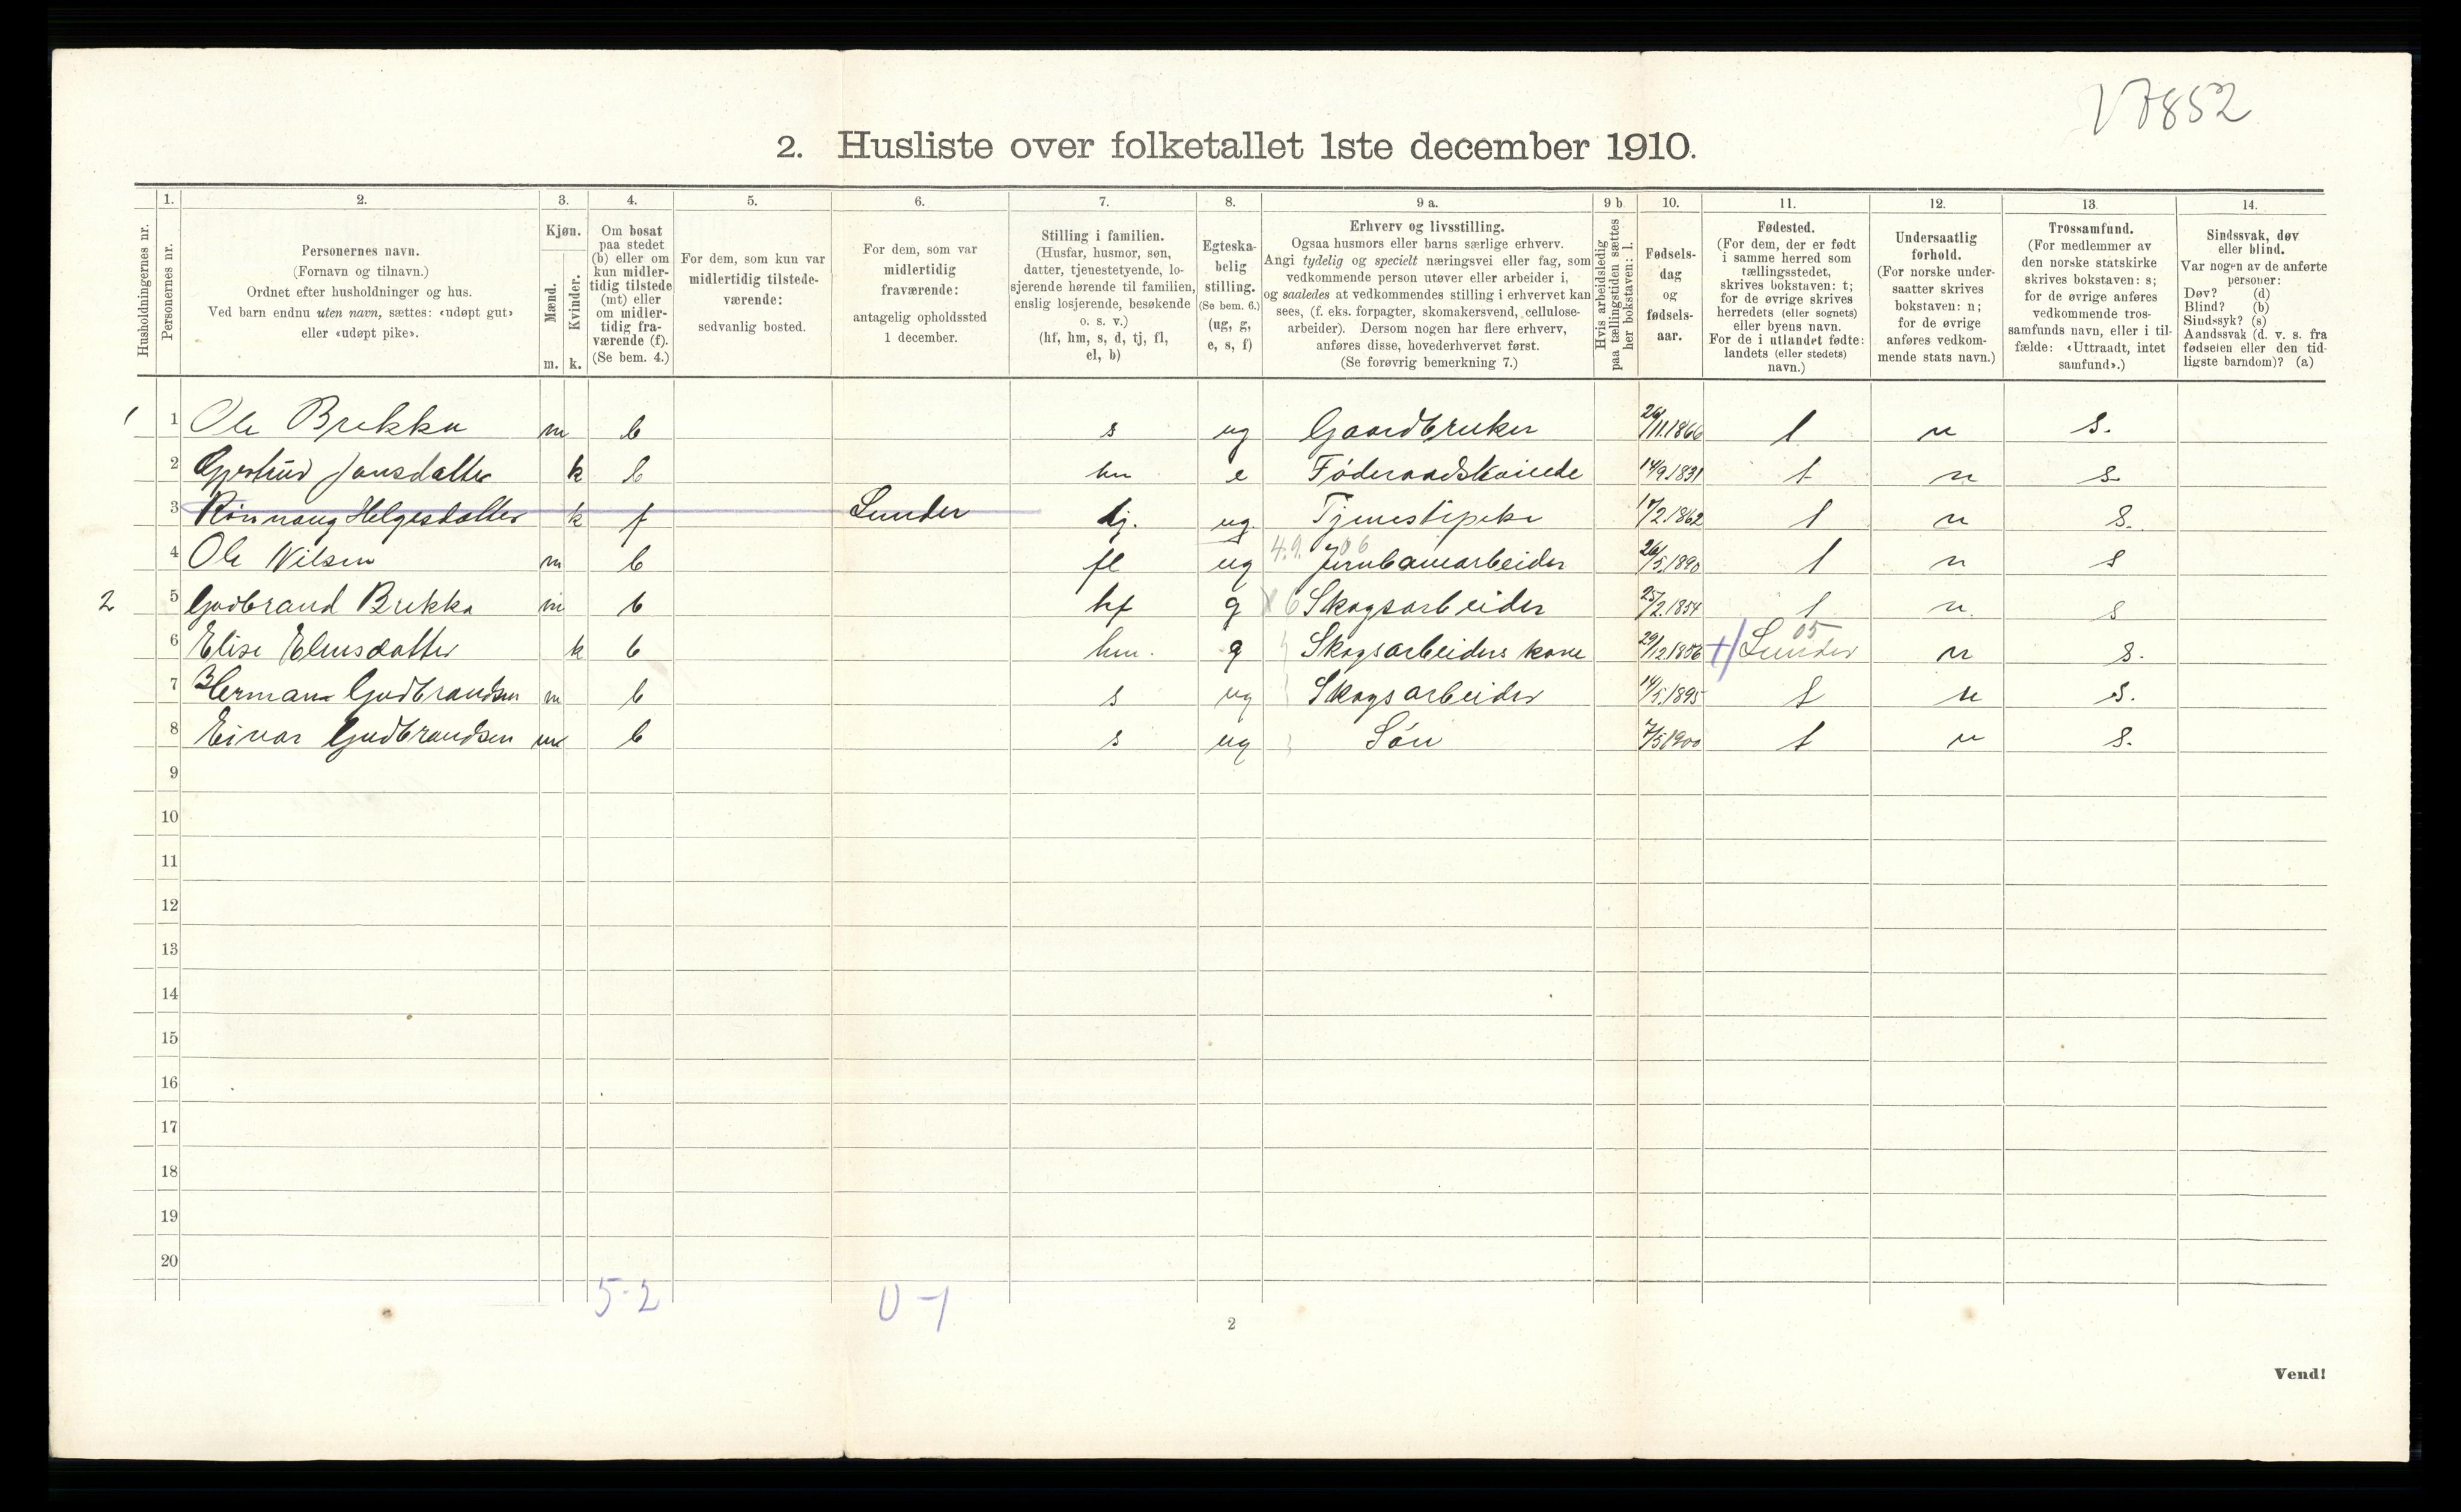 V7852
2. Husliste over folketallet 1ste december 1910.
Husholdningernes nr.
1.
Personernes nr.
2.
Personernes navn.
(Fornavn og tilnavn.)
Ordnet efter husholdninger og hus.
Ved barn endnu uten navn, sættes: «udøpt gut»
eller «udøpt pike».
3.
Kjøn.
Mænd.
Kvinder.
m. k.
4.
Om bosat
paa stedet
(b) eller om
kun midler-
tidig tilstede
(mt) eller
om midler-
tidig fra-
værende (f).
(Se bem. 4.)
5.
For dem, som kun var
midlertidig tilstede-
værende:
sedvanlig bosted.
6.
For dem, som var
midlertidig
fraværende:
antagelig opholdssted
1 december.
7.
Stilling i familien.
(Husfar, husmor, søn,
datter, tjenestetyende, lo-
sjerende hørende til familien,
enslig losjerende, besøkende
o. s. v.)
(hf, hm, s, d, tj, fl,
el, b)
8.
Egteska-
belig
stilling.
(Se bem. 6.)
(ug, g,
e, s, f)
9 a.
Erhverv og livsstilling.
Ogsaa husmors eller barns særlige erhverv.
Angi tydelig og specielt næringsvei eller fag, som
vedkommende person utøver eller arbeider i,
og saaledes at vedkommendes stilling i erhvervet kan
sees, (f. eks. forpagter, skomakersvend, cellulose-
arbeider). Dersom nogen har flere erhverv,
anføres disse, hovederhvervet først.
(Se forøvrig bemerkning 7.)
9 b
Hvis arbeidsledig
paa tællingstiden sættes
her bokstaven: l.
10.
Fødsels-
dag
og
fødsels-
aar.
11.
Fødested.
(For dem, der er født
i samme herred som
tællingsstedet,
skrives bokstaven: t;
for de øvrige skrives
herredets (eller sognets)
eller byens navn.
For de i utlandet fødte:
landets (eller stedets)
navn.)
12.
Undersaatlig
forhold.
(For norske under-
saatter skrives
bokstaven: n;
for de øvrige
anføres vedkom-
mende stats navn.)
13.
Trossamfund.
(For medlemmer av
den norske statskirke
skrives bokstaven: s;
for de øvrige anføres
vedkommende tros-
samfunds navn, eller i til-
fælde: «Uttraadt, intet
samfund».)
14.
Sindssvak, døv
eller blind.
Var nogen av de anførte
personer:
Døv? (d)
Blind? (b)
Sindssyk? (s)
Aandssvak (d. v. s. fra
fødselen eller den tid-
ligste barndom)? (a)
1 1 Ole Brekka m b s ug Gaardbruker 26/11.1866 t n s.
2 Gjertrud Jonsdatter k b hm e Føderaadskvinde 14/9.1831 t n s.
3 Rønnaug Helgesdatter k f Lunder tj. ug. Tjenestepike 17/2.1862 t n s.
4 Ole Nilsen m b fl ug 4.9. 06 Jernbanearbeider 26/5.1890 t n s
2 5 Gudbrand Brekka m b hf g Skogsarbeider 25/2.1854 t n. s
6 Elise Elensdatter k b hm. g Skogsarbeiders kone 29/12.1856 +/ Lunder 05 n s.
7 Herman Gudbrandsen m b s ug Skogsarbeider 14/5.1895 t n s.
8 Eivar Gudbrandsen m b s ug Søn 7/5.1900 t n s.
9
10
11
12
13
14
15
16
17
18
19
20
5-2 0-1
2
Vend!